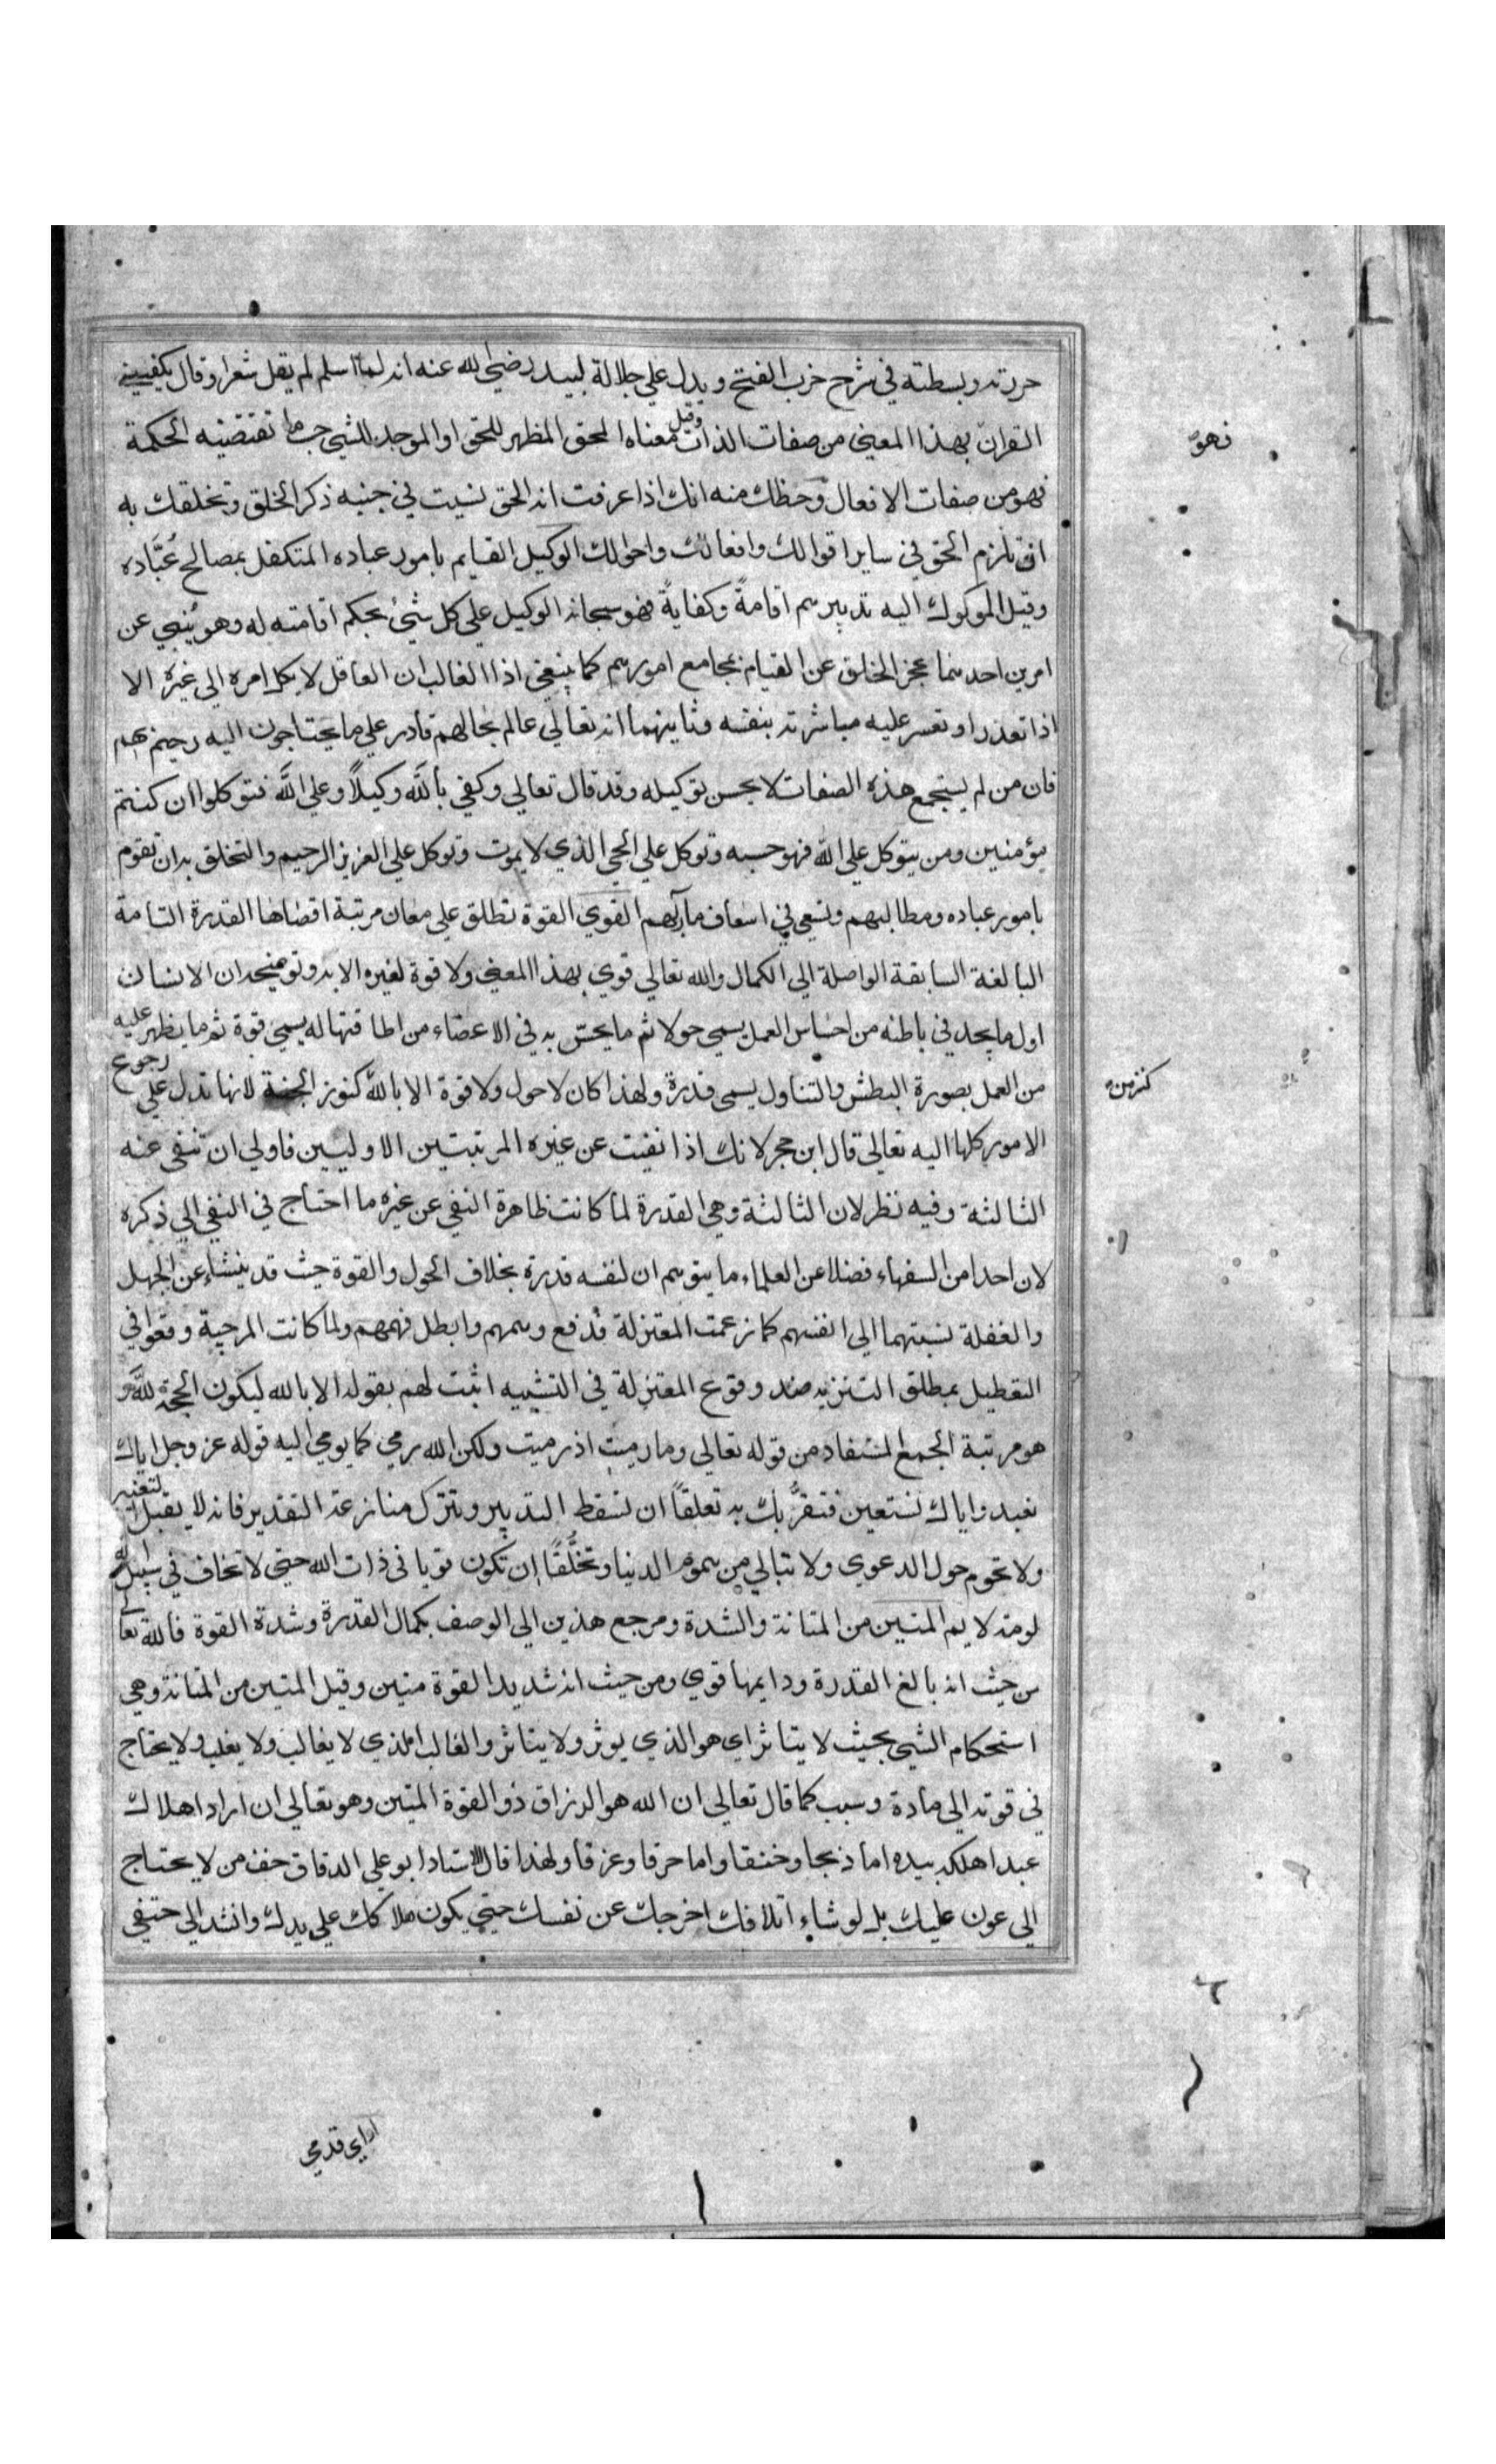 حررته وبسطته في شرح حزب الفتح ويدل علي جلالة لبيد رضي الله عنه انه لما اسلم لم يقل شعرا وقال يكفيني
القران بهذا المعني من صفات الذات وقيل معناه المحق المظهر للحق او الموجد للشي حسب ما تقتضيه الحكمة
فهو
فهو من صفات الافعال وحظك منه انك اذا عرفت انه الحق نسيت في جنبه ذكر الخلق وتخلقك به
ان تلزم الحق في ساير اقوالك وافعالك واحوالك الوكيل القايم بامور عباده المتكفل بمصالح عُبَّاده
وقيل الموكول اليه تدبيرهم اقامةً وكفايةً فهو سبحانه الوكيل علي كل شيء بحكم اقامته له وهو يُنبي عن
امرين احدهما عجز الخلق عن القيام بمجامع امورهم كما ينبغي اذ الغالب ان العاقل لا يكل امره الي غيره الا
اذا تعذر او تعسر عليه مباشرته بنفسه وثانيهما انه تعالي عالم بحالهم قادر علي ما يحتاجون اليه رحيم بهم
فان من لم يستجمع هذه الصفات لا يحسن توكيله وقد قال تعالي وكفي بالله وكيلاً وعلي الله فتوكلوا ان كنتم
مؤمنين ومن يتوكل علي الله فهو حسبه وتوكل علي الحي الذي لا يموت وتوكل علي العزيز الرحيم والتخلق به ان تقوم
بامور عباده ومطالبهم وتسعي في اسعاف مآربهم القوي القوة تطلق علي معان مرتبة اقصاها القدرة التامة
البالغة السابقة الواصلة الي الكمال والله تعالي قوي بهذا المعني ولا قوة لغيره الا به وتوضيحه ان الانسان
اول ما يجد في باطنه من احساس العمل يسمي حولا ثم ما يحسّ به في الاعضاء من اطاقتها له يسمي قوة ثم ما يظهر عليه
من العمل بصورة البطش والتناول يسمي قدرة ولهذا كان لا حول ولا قوة الا بالله كنوز الجنة لانها تدل علي رجوع
كنز من
الامور كلها اليه تعالي قال ابن حجر لانك اذا نفيت عن غيره المرتبتين الاوليين فاولي ان تنفي عنه
الثالثة وفيه نظر لان الثالثة وهي القدرة لما كانت ظاهرة النفي عن غيره ما احتاج في النفي الي ذكره
لان احدا من السفهاء فضلا عن العلماء ما يتوهم ان لنفسه قدرة بخلاف الحول والقوة حيث قد ينشاء عن الجهل
والغفلة نسبتهما الي انفسهم كما زعمت المعتزلة فدفع وهمهم وابطل فهمهم ولما كانت المرجية وقعوا في
التعطيل بمطلق التنزيه ضد وقوع المعتزلة في التشبيه اثبت لهم بقوله الا بالله ليكون الحجة لله و
هو مرتبة الجمع المستفاد من قوله تعالي وما رميت اذ رميت ولكن الله رمي كما يومي اليه قوله عز وجل اياك
نعبد واياك نستعين فتقرُّبك به تعلقاً ان تسقط التدبير وتترك منازعة التقدير فانه لا يقبل التغيير
ولا تحوم حول الدعوي ولا تبالي من هموم الدنيا وتخلُّقًا ان تكون قويا في ذات الله حتي لا تخاف في سبيل الله
لومة لايم المتين من المتانة والشدة ومرجع هذين الي الوصف بكمال القدرة وشدة القوة فالله تعالي
من حيث انه بالغ القدرة ودايمها قوي ومن حيث انه شديد القوة متين وقيل المتين من المتانة وهي
استحكام الشي بحيث لا يتاثر اي هو الذي يوثر ولا يتاثر والغالب الذي لا يغالب ولا يغلب ولا يحتاج
في قوته الي مادة وسبب كما قال تعالي ان الله هو الرزاق ذو القوة المتين وهو تعالي ان اراد اهلاك
عبد اهلكه بيده اما ذبحا وخنقا واما حرقا وغرقا ولهذا قال الاستاد ابو علي الدقاق خف من لا يحتاج
الي عون عليك بل لو شاء اتلافك اخرجك عن نفسك حتي يكون هلاكك علي يدك وانشد الي حتفي
اراي قدمي